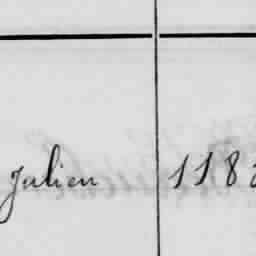 Julien 118